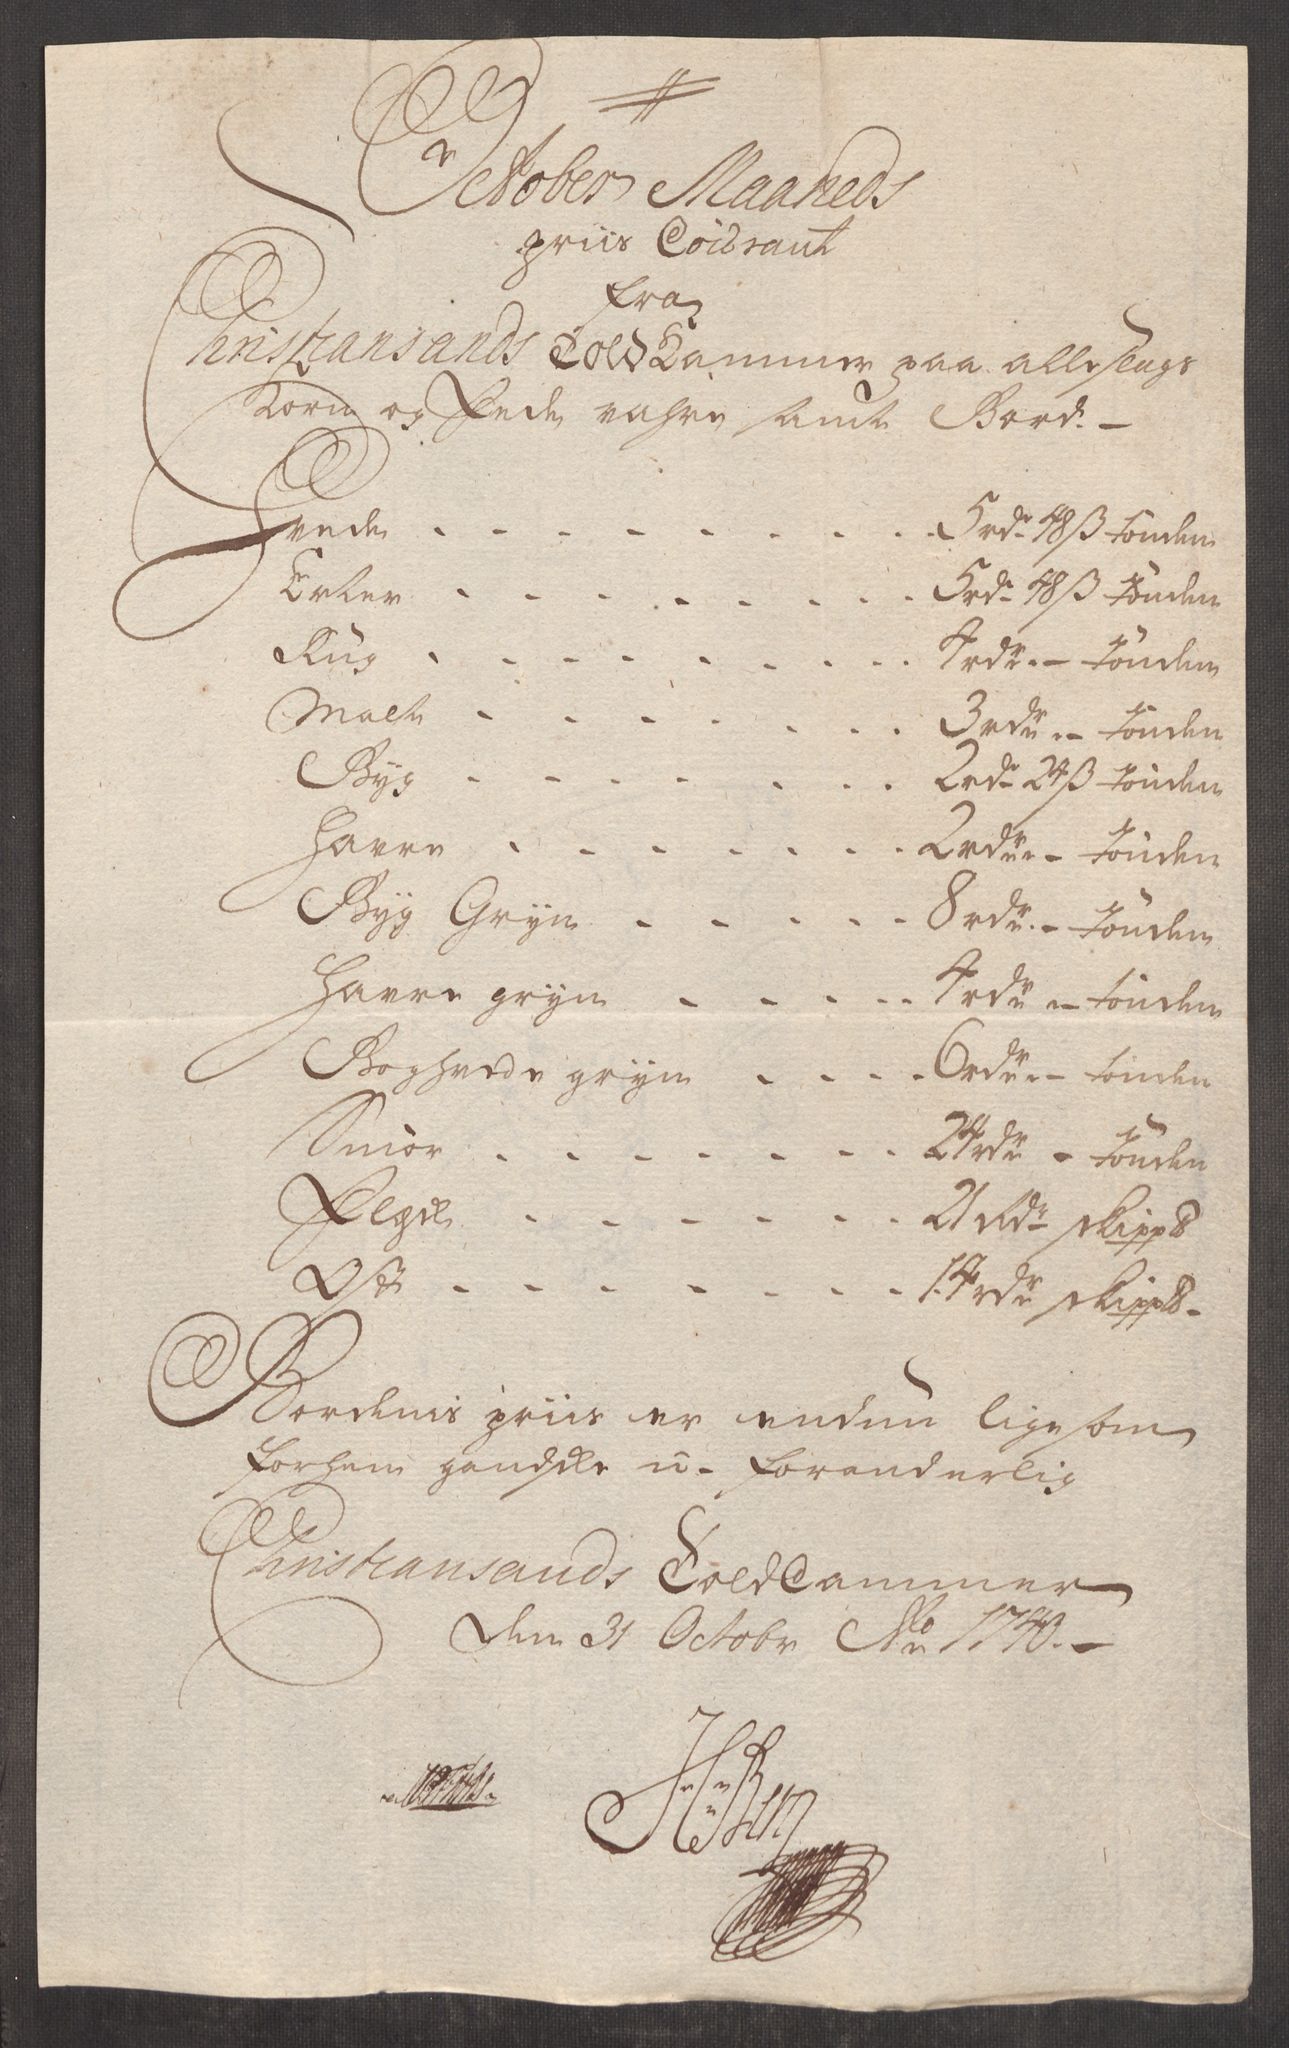 October Maaneds
priis Coürant
fra
Christiansands Told Cammer paa alle slags
Korn og Fede vahre samt Bord. -
Hvede . . . . . . . . 5 rdr 48 ß tönden
Erter . . . . . . . . 5 rdr 48 ß tönden
Rug . . . . . . . . 4 rdr - tönden
Malt . . . . . . . 3 rdr - tönden
Byg . . . . . . . 2 rdr 24 ß tönden
Havre . . . . . . . 2 rdr - tönden
Byg Gryn . . . . . 8 rdr - tönden
Havre gryn . . . . . 4 rdr - tönden
Boghvede gryn . . . . 6 rdr - tönden
Smör . . . . . . . 24 rdr - tönden
Flesk . . . . . . 21 Rdr skipp℔
Ost . . . . . . . 14 rdr skipp℔ -
Bordenis priis er endnu lige som
forhen gandske u-foranderlig
Christiansands Told Cammer
den 31 Octobr Ao 1740. -